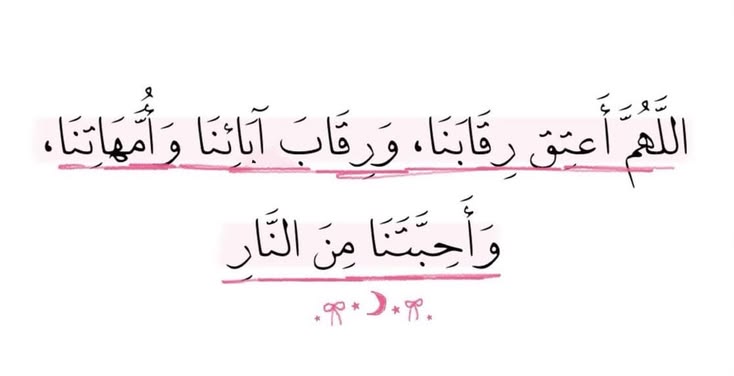 اللَّهُمَّ أَعتِق رِقَابَنَا، وَرِقَابَ آبَائِنَا وَأُمَّهَاتِنَا،
وَأَحِبَّتَنَا مِنَ النَّارِ